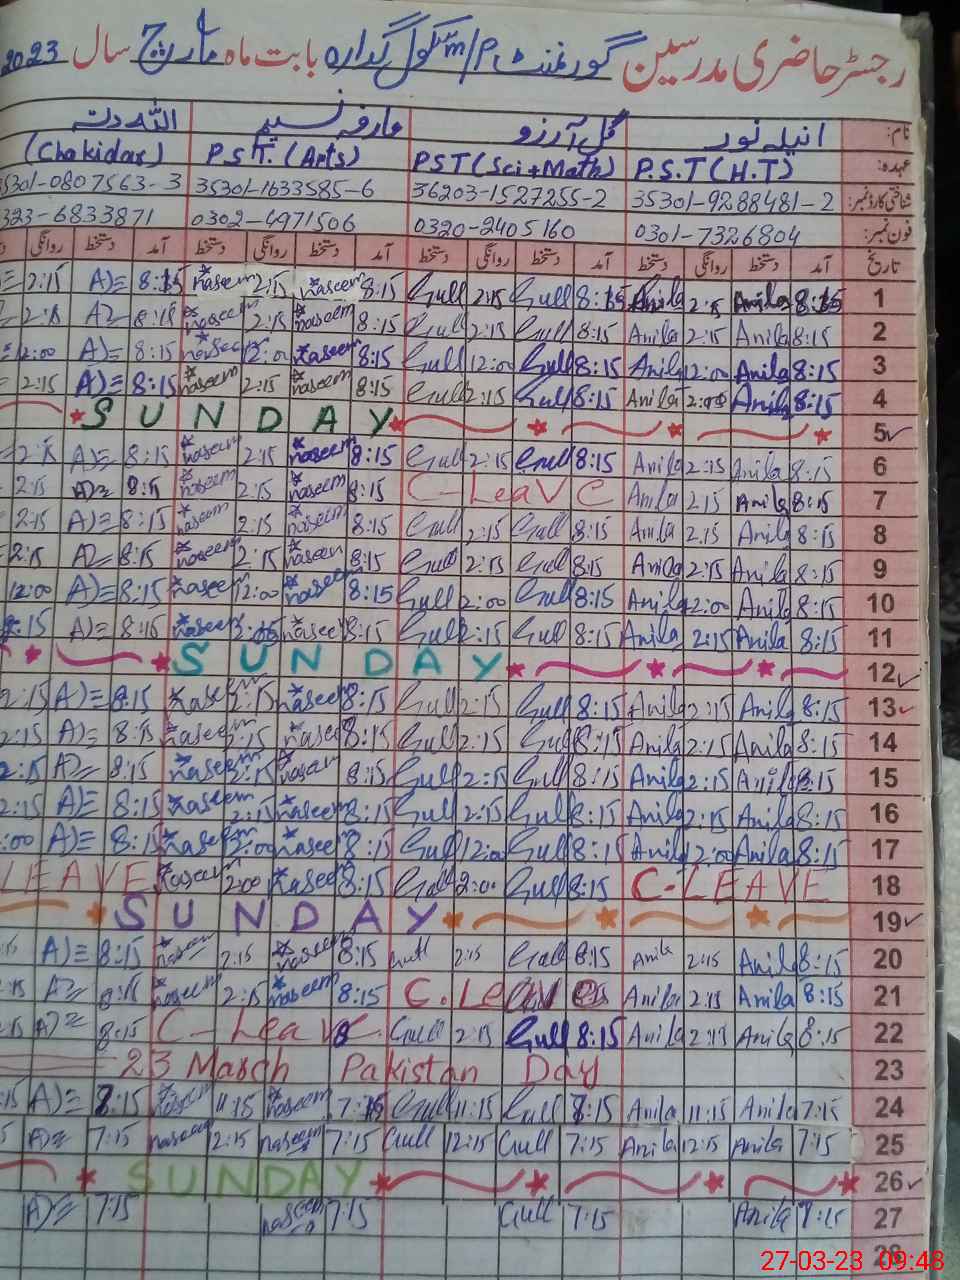 رجسٹر حاضری مدرسین گورنمنٹ P/m سکول گدارہ بابت ماہ مارچ سال 2023
نام: انیلہ نور گل آرزو عارفہ نسیم اللہ دتہ
عہدہ: P.S.T (H.T) PST (Sci+Math) P.S.T. (Arts) (Chokidar)
شناختی کارڈ نمبر: 35301-9288481-2 36203-1527255-2 35301-1633585-6 35301-0807563-3
فون نمبر: 0301-7326804 0320-2405160 0302-4971506 323-6833871
تاریخ آمد دستخط روانگی دستخط آمد دستخط روانگی دستخط آمد دستخط روانگی دستخط آمد دستخط روانگی
2:15 8:15 naseem 2:15 naseem 8:15 Gull 2:15 Gull 8:15 Anila 2:15 Anila 8:15 1
2:15 8:15 naseem 2:15 naseem 8:15 Gull 2:15 Gull 8:15 Anila 2:15 Anila 8:15 2
12:00 8:15 naseem 12:00 naseem 8:15 Gull 12:00 Gull 8:15 Anila 12:00 Anila 8:15 3
2:15 8:15 naseem 2:15 naseem 8:15 Gull 2:15 Gull 8:15 Anila Anila 8:15 4
SUNDAY 5
2:15 8:15 naseem 2:15 naseem 8:15 Gull 2:15 Gull 8:15 Anila 2:15 Anila 8:15 6
2:15 8:15 naseem 2:15 naseem 8:15 C-Leave Anila 2:15 Anila 8:15 7
2:15 8:15 naseem 2:15 naseem 8:15 Gull 2:15 Gull 8:15 Anila 2:15 Anila 8:15 8
2:15 8:15 naseem 2:15 naseem 8:15 Gull 2:15 Gull 8:15 Anila 2:15 Anila 8:15 9
12:00 8:15 naseem 12:00 naseem 8:15 Gull 12:00 Gull 8:15 Anila 12:00 Anila 8:15 10
2:15 8:15 naseem naseem 8:15 Gull 2:15 Gull 8:15 Anila 2:15 Anila 8:15 11
SUNDAY 12
2:15 8:15 naseem 2:15 naseem 8:15 Gull 2:15 Gull 8:15 Anila 2:15 Anila 8:15 13
2:15 8:15 naseem 2:15 naseem 8:15 Gull 2:15 Gull 8:15 Anila 2:15 Anila 8:15 14
2:15 8:15 naseem 2:15 naseem 8:15 Gull 2:15 Gull 8:15 Anila 2:15 Anila 8:15 15
2:15 8:15 naseem 2:15 naseem 8:15 Gull 2:15 Gull 8:15 Anila 2:15 Anila 8:15 16
:00 8:15 naseem 12:00 naseem 8:15 Gull 12:00 Gull 8:15 Anila 12:00 Anila 8:15 17
LEAVE naseem 2:00 naseem 8:15 Gull 2:00 Gull 8:15 C-LEAVE 18
SUNDAY 19
:15 8:15 naseem 2:15 naseem 8:15 Gull 2:15 Gull 8:15 Anila 2:15 Anila 8:15 20
:15 8:15 naseem 2:15 naseem 8:15 C.Leave Anila 2:15 Anila 8:15 21
:15 8:15 C-Leave Gull 2:15 Gull 8:15 Anila 2:15 Anila 8:15 22
23 March Pakistan Day 23
:15 8:15 naseem 11:15 naseem 7:15 Gull 11:15 Gull 8:15 Anila 11:15 Anila 7:15 24
7:15 naseem 12:15 naseem 7:15 Gull 12:15 Gull 7:15 Anila 12:15 Anila 7:15 25
SUNDAY 26
7:15 naseem 7:15 Gull 7:15 Anila 7:15 27
28
27-03-23 09:48